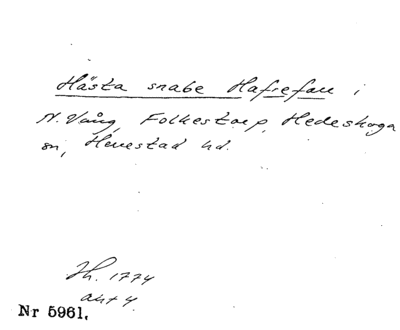 Hästa snabe Hafrefall i
N. Vång, Folkestorp, Hedeskoga
sn, Herrestad hd.
Jh. 1774
akt 4.
Nr 5961.